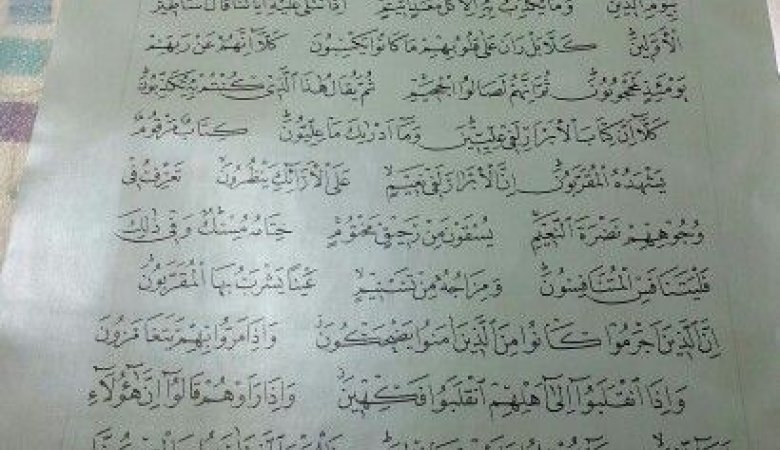 بِيَوْمِ الدِّينِ وَمَا يُكَذِّبُ بِهِ إِلَّا كُلُّ مُعْتَدٍ أَثِيمٍ إِذَا تُتْلَىٰ عَلَيْهِ آيَاتُنَا قَالَ أَسَاطِيرُ
الْأَوَّلِينَ كَلَّا بَلْ رَانَ عَلَىٰ قُلُوبِهِمْ مَا كَانُوا يَكْسِبُونَ كَلَّا إِنَّهُمْ عَنْ رَبِّهِمْ
يَوْمَئِذٍ لَمَحْجُوبُونَ ثُمَّ إِنَّهُمْ لَصَالُوا الْجَحِيمِ ثُمَّ يُقَالُ هَٰذَا الَّذِي كُنْتُمْ بِهِ تُكَذِّبُونَ
كَلَّا إِنَّ كِتَابَ الْأَبْرَارِ لَفِي عِلِّيِّينَ وَمَا أَدْرَاكَ مَا عِلِّيُّونَ كِتَابٌ مَرْقُومٌ
يَشْهَدُهُ الْمُقَرَّبُونَ إِنَّ الْأَبْرَارَ لَفِي نَعِيمٍ عَلَى الْأَرَائِكِ يَنْظُرُونَ تَعْرِفُ فِي
وُجُوهِهِمْ نَضْرَةَ النَّعِيمِ يُسْقَوْنَ مِنْ رَحِيقٍ مَخْتُومٍ خِتَامُهُ مِسْكٌ وَفِي ذَٰلِكَ
فَلْيَتَنَافَسِ الْمُتَنَافِسُونَ وَمِزَاجُهُ مِنْ تَسْنِيمٍ عَيْنًا يَشْرَبُ بِهَا الْمُقَرَّبُونَ
إِنَّ الَّذِينَ أَجْرَمُوا كَانُوا مِنَ الَّذِينَ آمَنُوا يَضْحَكُونَ وَإِذَا مَرُّوا بِهِمْ يَتَغَامَزُونَ
وَإِذَا انْقَلَبُوا إِلَىٰ أَهْلِهِمُ انْقَلَبُوا فَكِهِينَ وَإِذَا رَأَوْهُمْ قَالُوا إِنَّ هَٰؤُلَاءِ